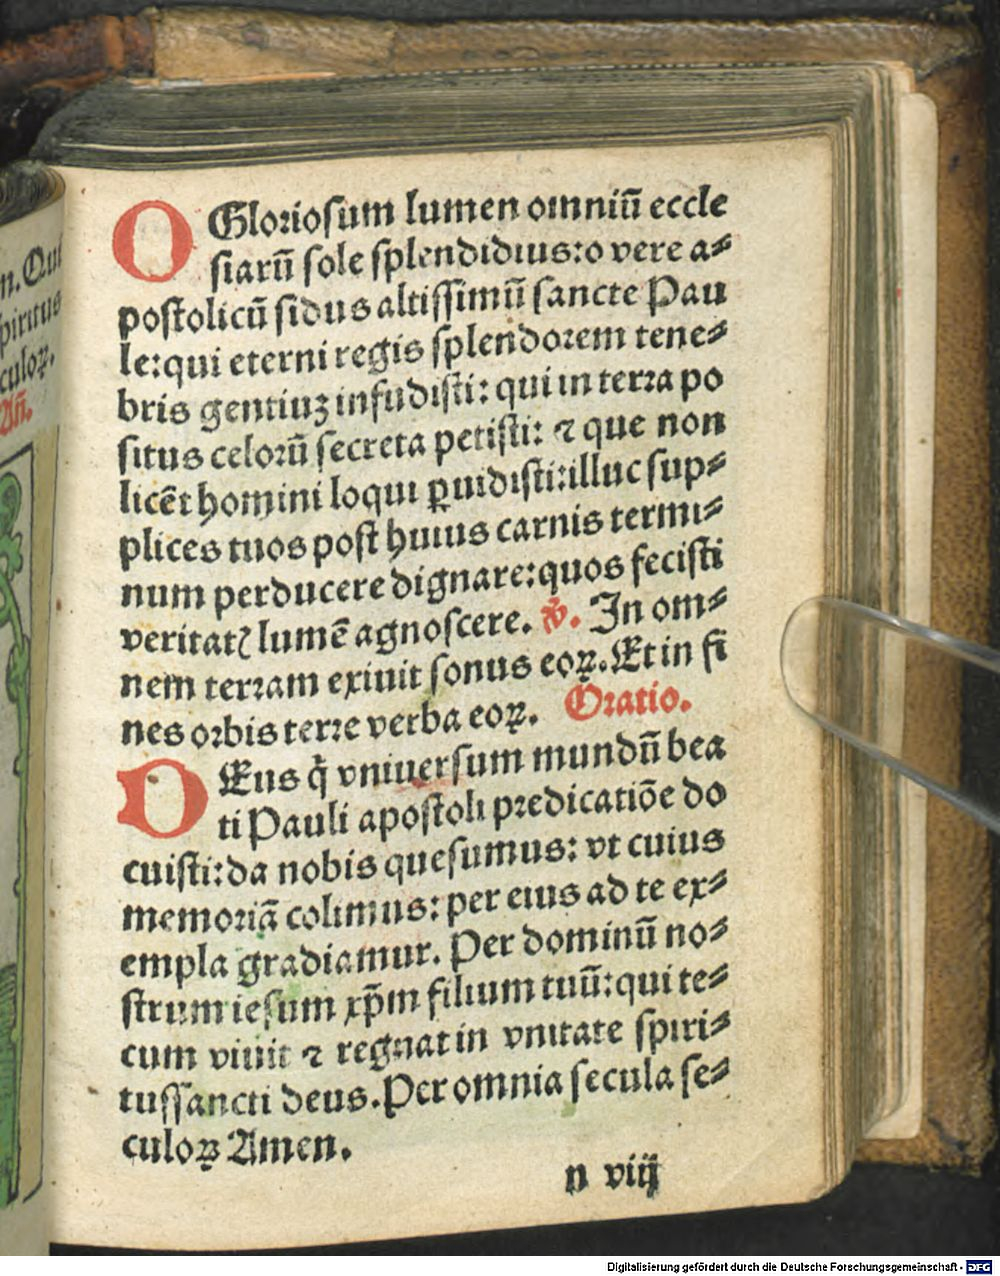 n. Qui
spiritus
culoꝝ.
Añ.
O Gloriosum lumen omniū eccle
siarū sole splendidius: o vere a-
postolicū sidus altissimū sancte Pau
le: qui eterni regis splendorem tene-
bris gentiuȝ infudisti: qui in terra po
situs celorū secreta petisti: ⁊ que non
licēt homini loqui ꝑuidisti: illuc sup-
plices tuos post huius carnis termi-
num perducere dignare: quos fecisti
veritatꝭ lumē agnoscere. ℣. In om-
nem terram exiuit sonus eoꝝ. Et in fi
nes orbis terre verba eoꝝ. Oratio.
DEus q̇ vniuersum mundū bea
ti Pauli apostoli predicatiōe do
cuisti: da nobis quesumus: vt cuius
memoriā colimus: per eius ad te ex-
empla gradiamur. Per dominū no-
strum iesum xp̄m filium tuū: qui te-
cum viuit ⁊ regnat in vnitate spiri-
tussancti deus. Per omnia secula se-
culoꝝ Amen.
n viij
Digitalisierung gefördert durch die Deutsche Forschungsgemeinschaft - DFG